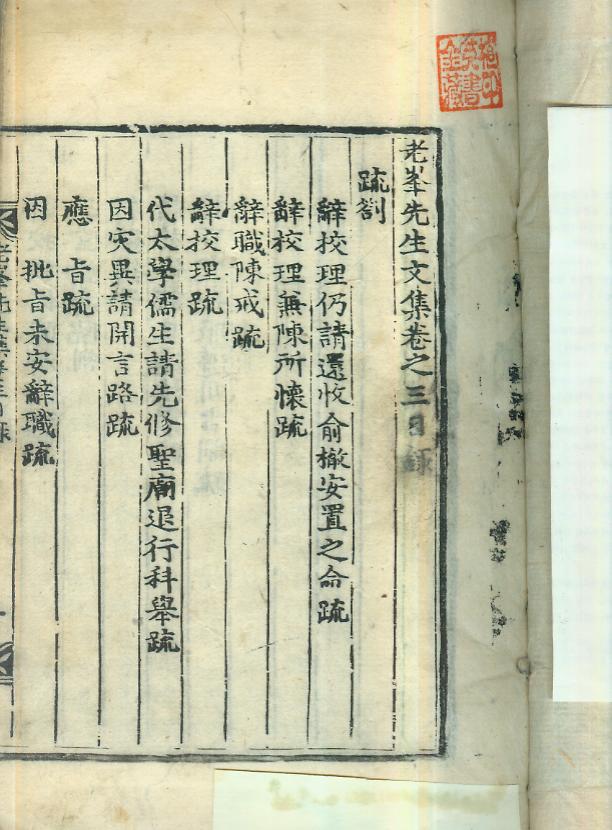 老峯先生文集卷之三目錄
疏劄
辭校理仍請還收俞㯙安置之命疏
辭校理兼陳所懷疏
辭職陳戒疏
辭校理疏
代太學儒生請先修聖廟退行科舉疏
因灾異請開言路疏
應 旨疏
因 批旨未安辭職疏
老峯先生集卷三目錄